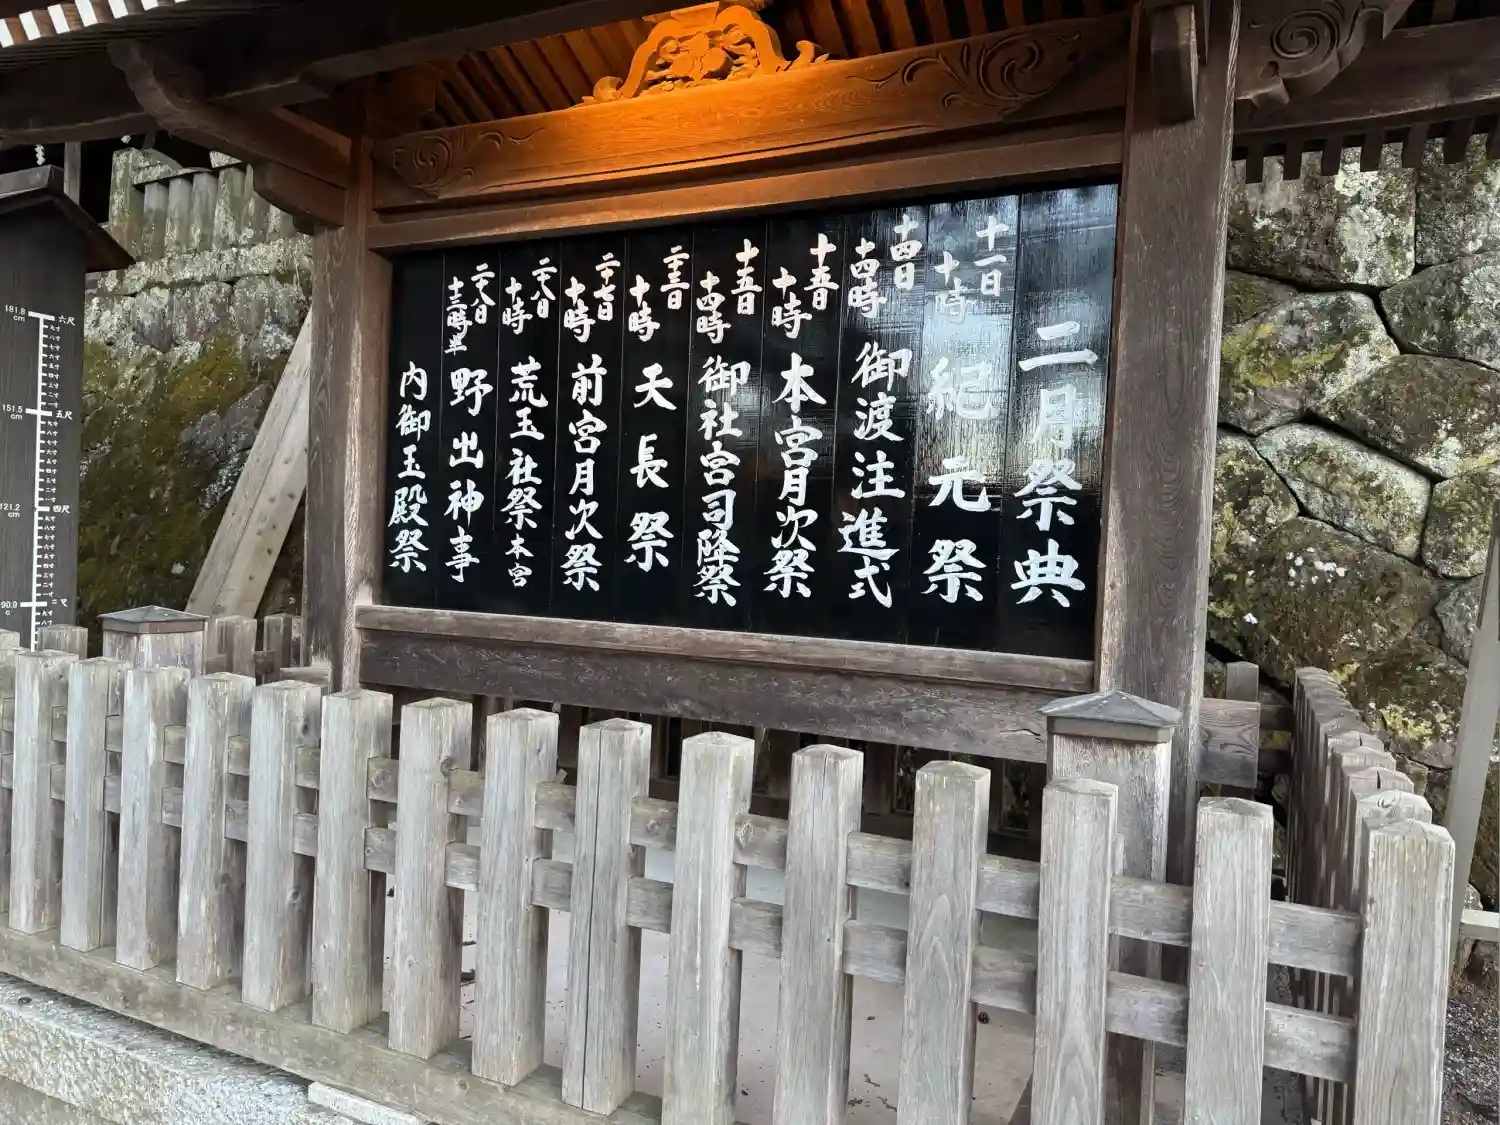 二月祭典
十一日
十時
紀元祭
十四日
十四時
御渡注進式
十五日
十時
本宮月次祭
十五日
十四時
御社宮司降祭
二十三日
十時
天長祭
二十七日
十時
前宮月次祭
二十八日
十時
荒玉社祭 本宮
二十八日
十三時半
野出神事
内御玉殿祭
181.8
cm
六尺
151.5
cm
五尺
121.2
cm
四尺
90.9